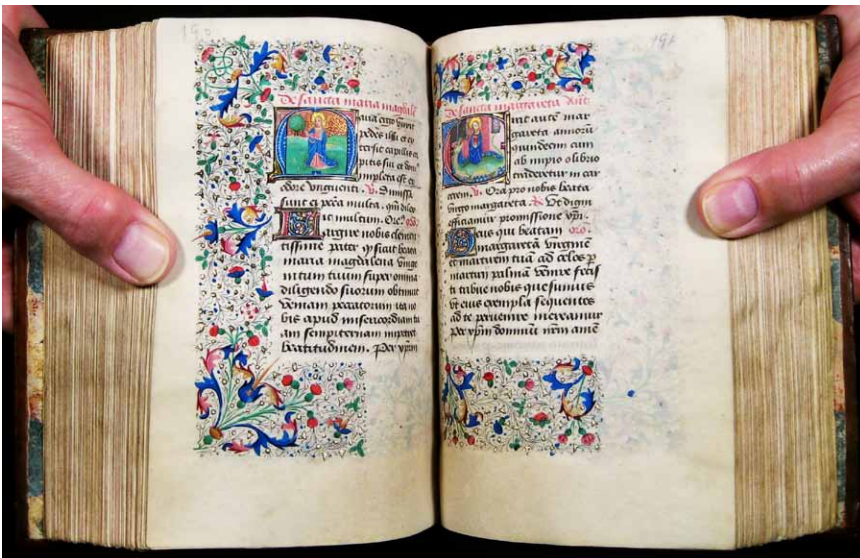 190
De sancta maria magdale
aria ergo vnxit
pedes ihu et ex
tersit capillis ca
pitis sui et dom9
impleta est ex
odore vnguenti. V. Dimissa
sunt ei pccā multa. qm̄ dilex
it multum. Orō.
Largire nobis clemen
tissime pater q̄ sicut beata
maria magdalena vnige
nitum tuum super omnia
diligendo suorum obtinuit
veniam peccatorum ita no
bis apud misericordiam tu
am sempiternam impetret
beatitudinem. Per xp̄m
191
De sancta margareta Ant
rat autē mar
gareta annorū
quindecim cum
ab impio olibrio
traderetur in car
cerem. V. Ora pro nobis beata
virgo margareta. R. Vt digni
efficiamur promissione xp̄i.
Deus qui beatam oro.
margaretā virginē
et martirem tuā ad celos p
martirii palmā venire fecis
ti tribue nobis quesumus
vt eius exempla sequentes
ad te peruenire mereamur
Per xp̄m dominū nr̄m amē